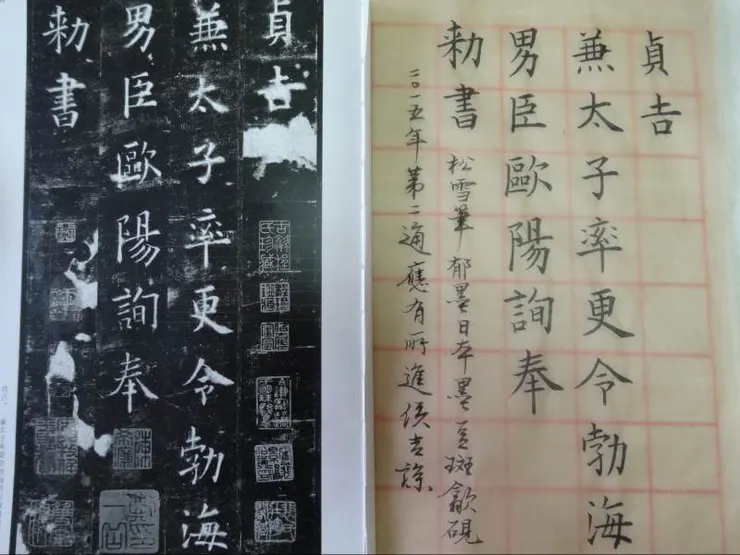 貞吉
兼太子率更令勃海
男臣歐陽詢奉
勑書
貞吉
兼太子率更令勃海
男臣歐陽詢奉
勑書
松雪筆郁墨日本墨豆斑歙硯
二〇一五年第二通應有所進侯吉諒